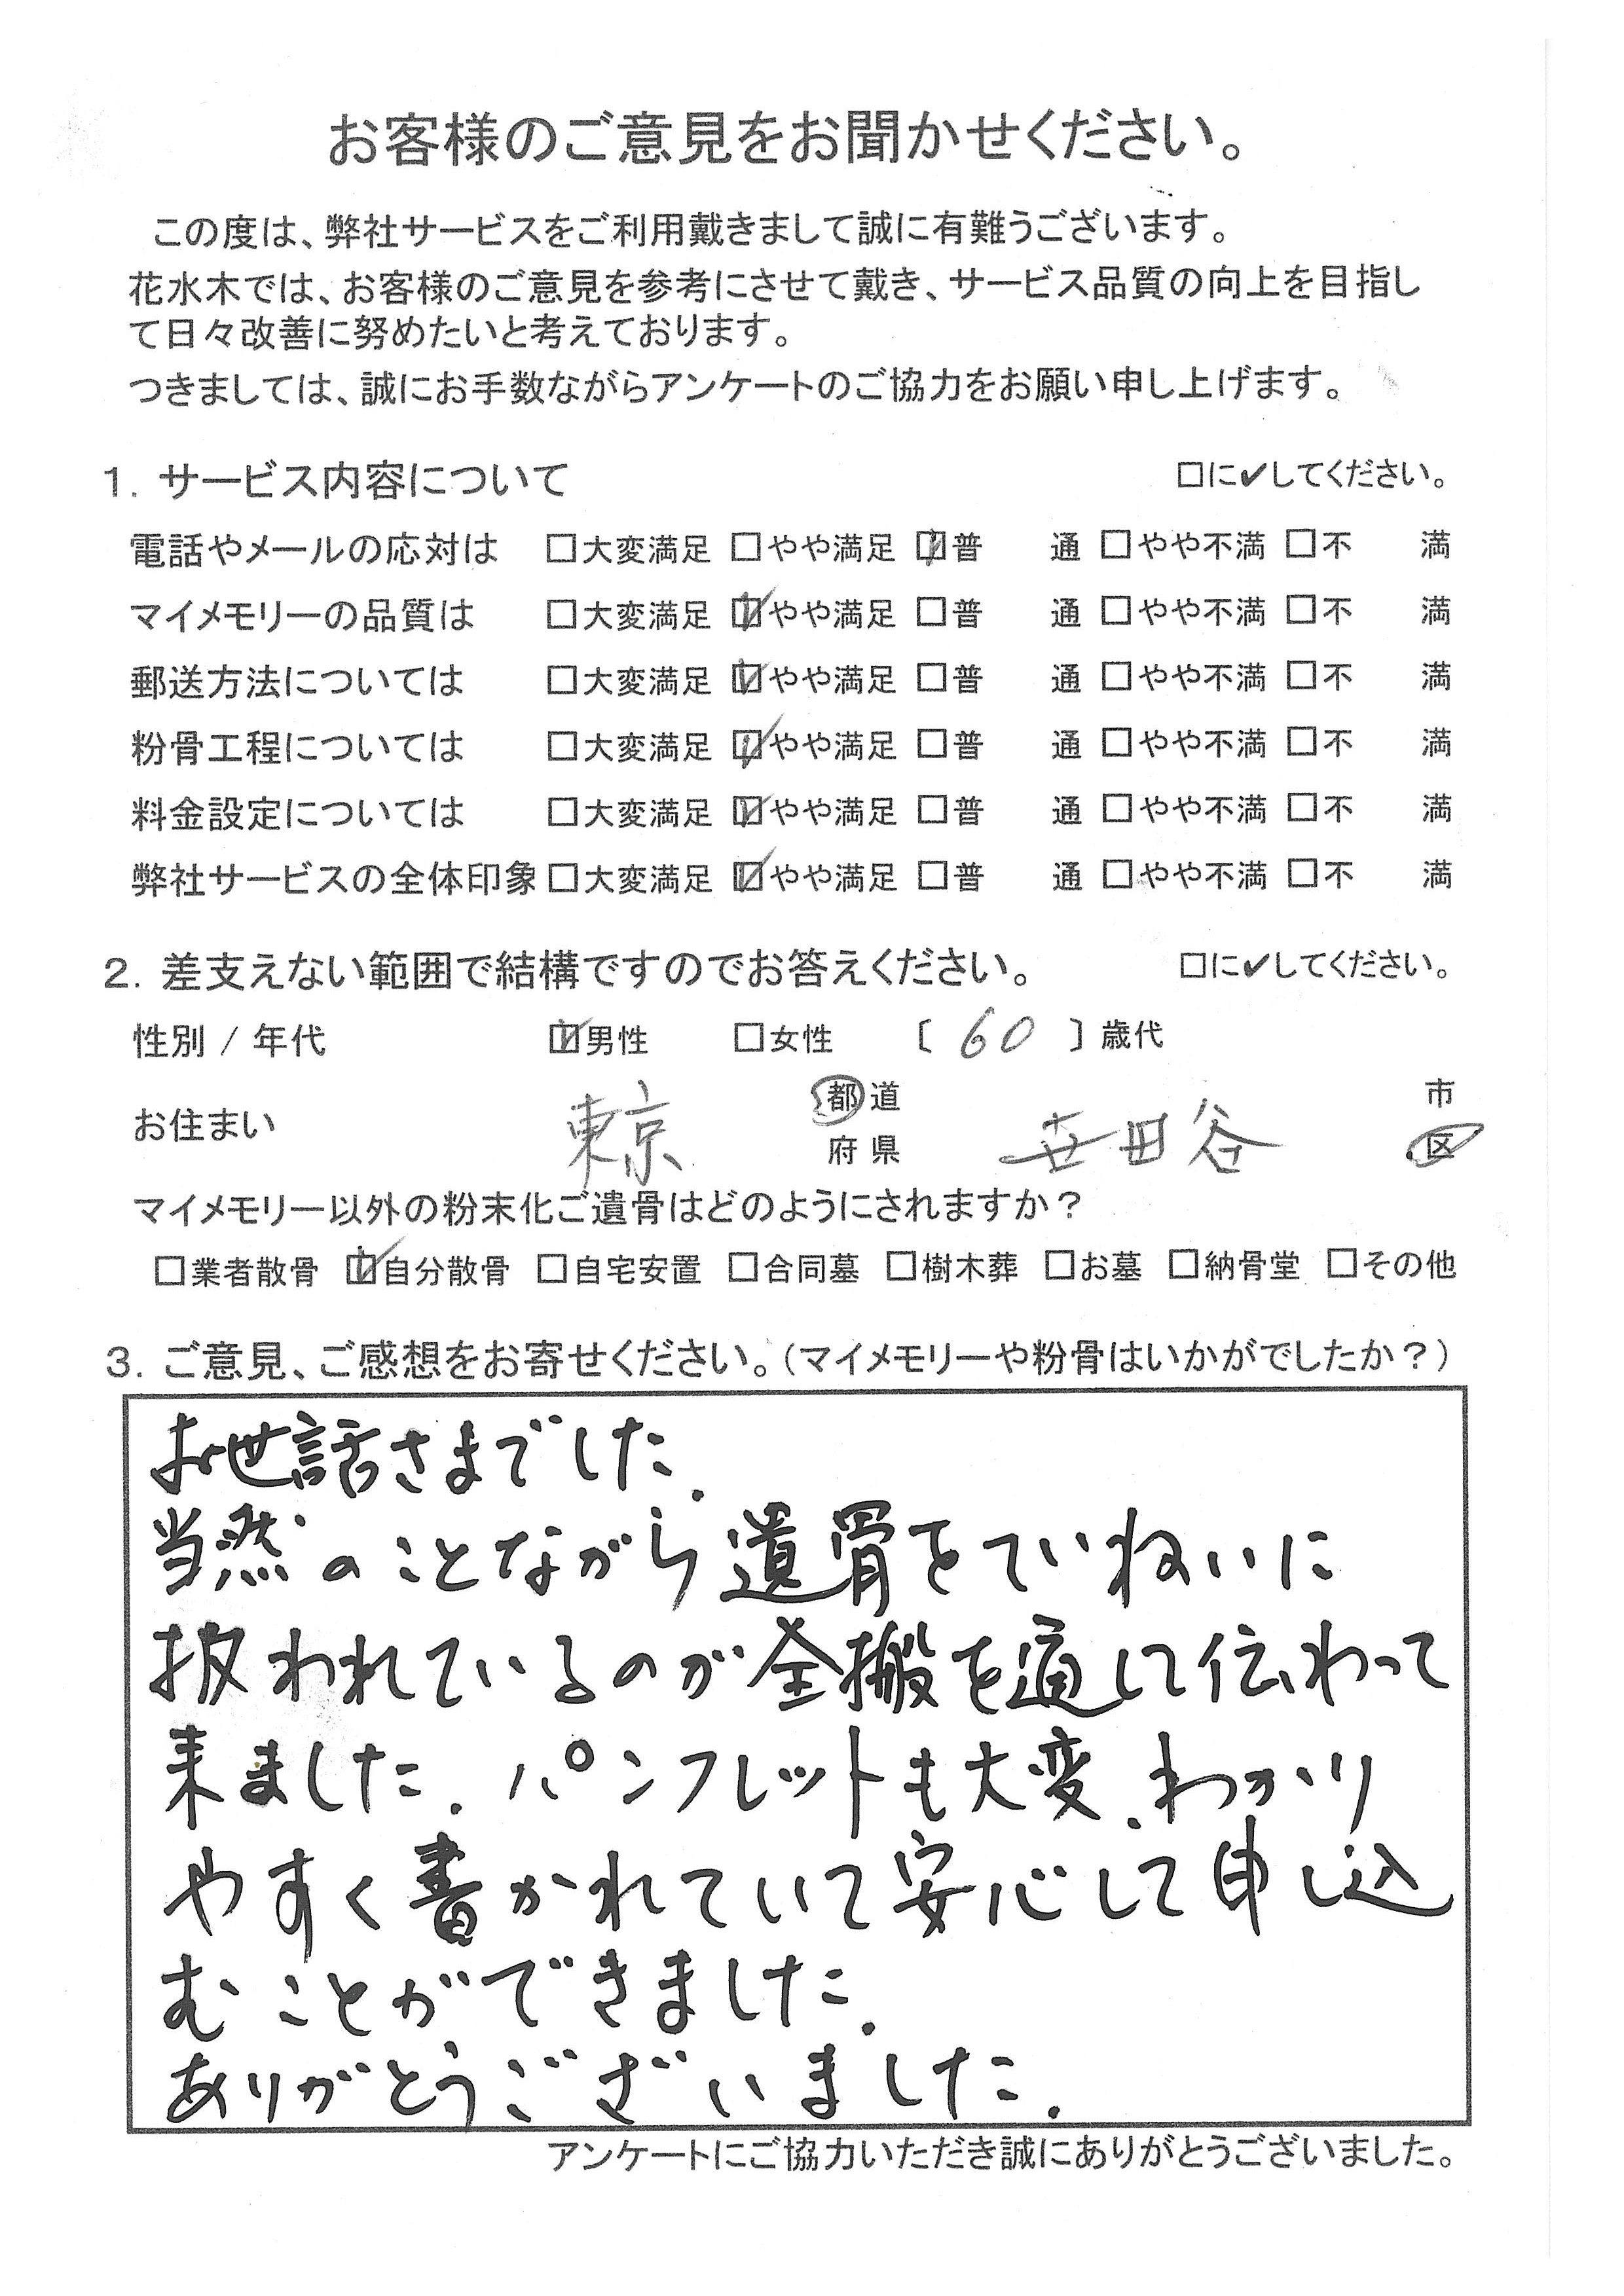 お客様のご意見をお聞かせください。
この度は、弊社サービスをご利用戴きまして誠に有難うございます。
花水木では、お客様のご意見を参考にさせて戴き、サービス品質の向上を目指し
て日々改善に努めたいと考えております。
つきましては、誠にお手数ながらアンケートのご協力をお願い申し上げます。
1. サービス内容について □に✔してください。
電話やメールの応対は □大変満足 □やや満足 ☑普 通 □やや不満 □不 満
マイメモリーの品質は □大変満足 ☑やや満足 □普 通 □やや不満 □不 満
郵送方法については □大変満足 ☑やや満足 □普 通 □やや不満 □不 満
粉骨工程については □大変満足 ☑やや満足 □普 通 □やや不満 □不 満
料金設定については □大変満足 ☑やや満足 □普 通 □やや不満 □不 満
弊社サービスの全体印象 □大変満足 ☑やや満足 □普 通 □やや不満 □不 満
2. 差支えない範囲で結構ですのでお答えください。 □に✔してください。
性別 / 年代 ☑男性 □女性 〔 60 〕歳代
お住まい 東京 都道府県 世田谷 市区
マイメモリー以外の粉末化ご遺骨はどのようにされますか？
□業者散骨 ☑自分散骨 □自宅安置 □合同墓 □樹木葬 □お墓 □納骨堂 □その他
3. ご意見、ご感想をお寄せください。（マイメモリーや粉骨はいかがでしたか？）
お世話さまでした.
当然のことながら遺骨をていねいに
扱われているのが全搬を通して伝わって
来ました. パンフレットも大変.わかり
やすく書かれていて安心して申し込
むことができました.
ありがとうございました.
アンケートにご協力いただき誠にありがとうございました。